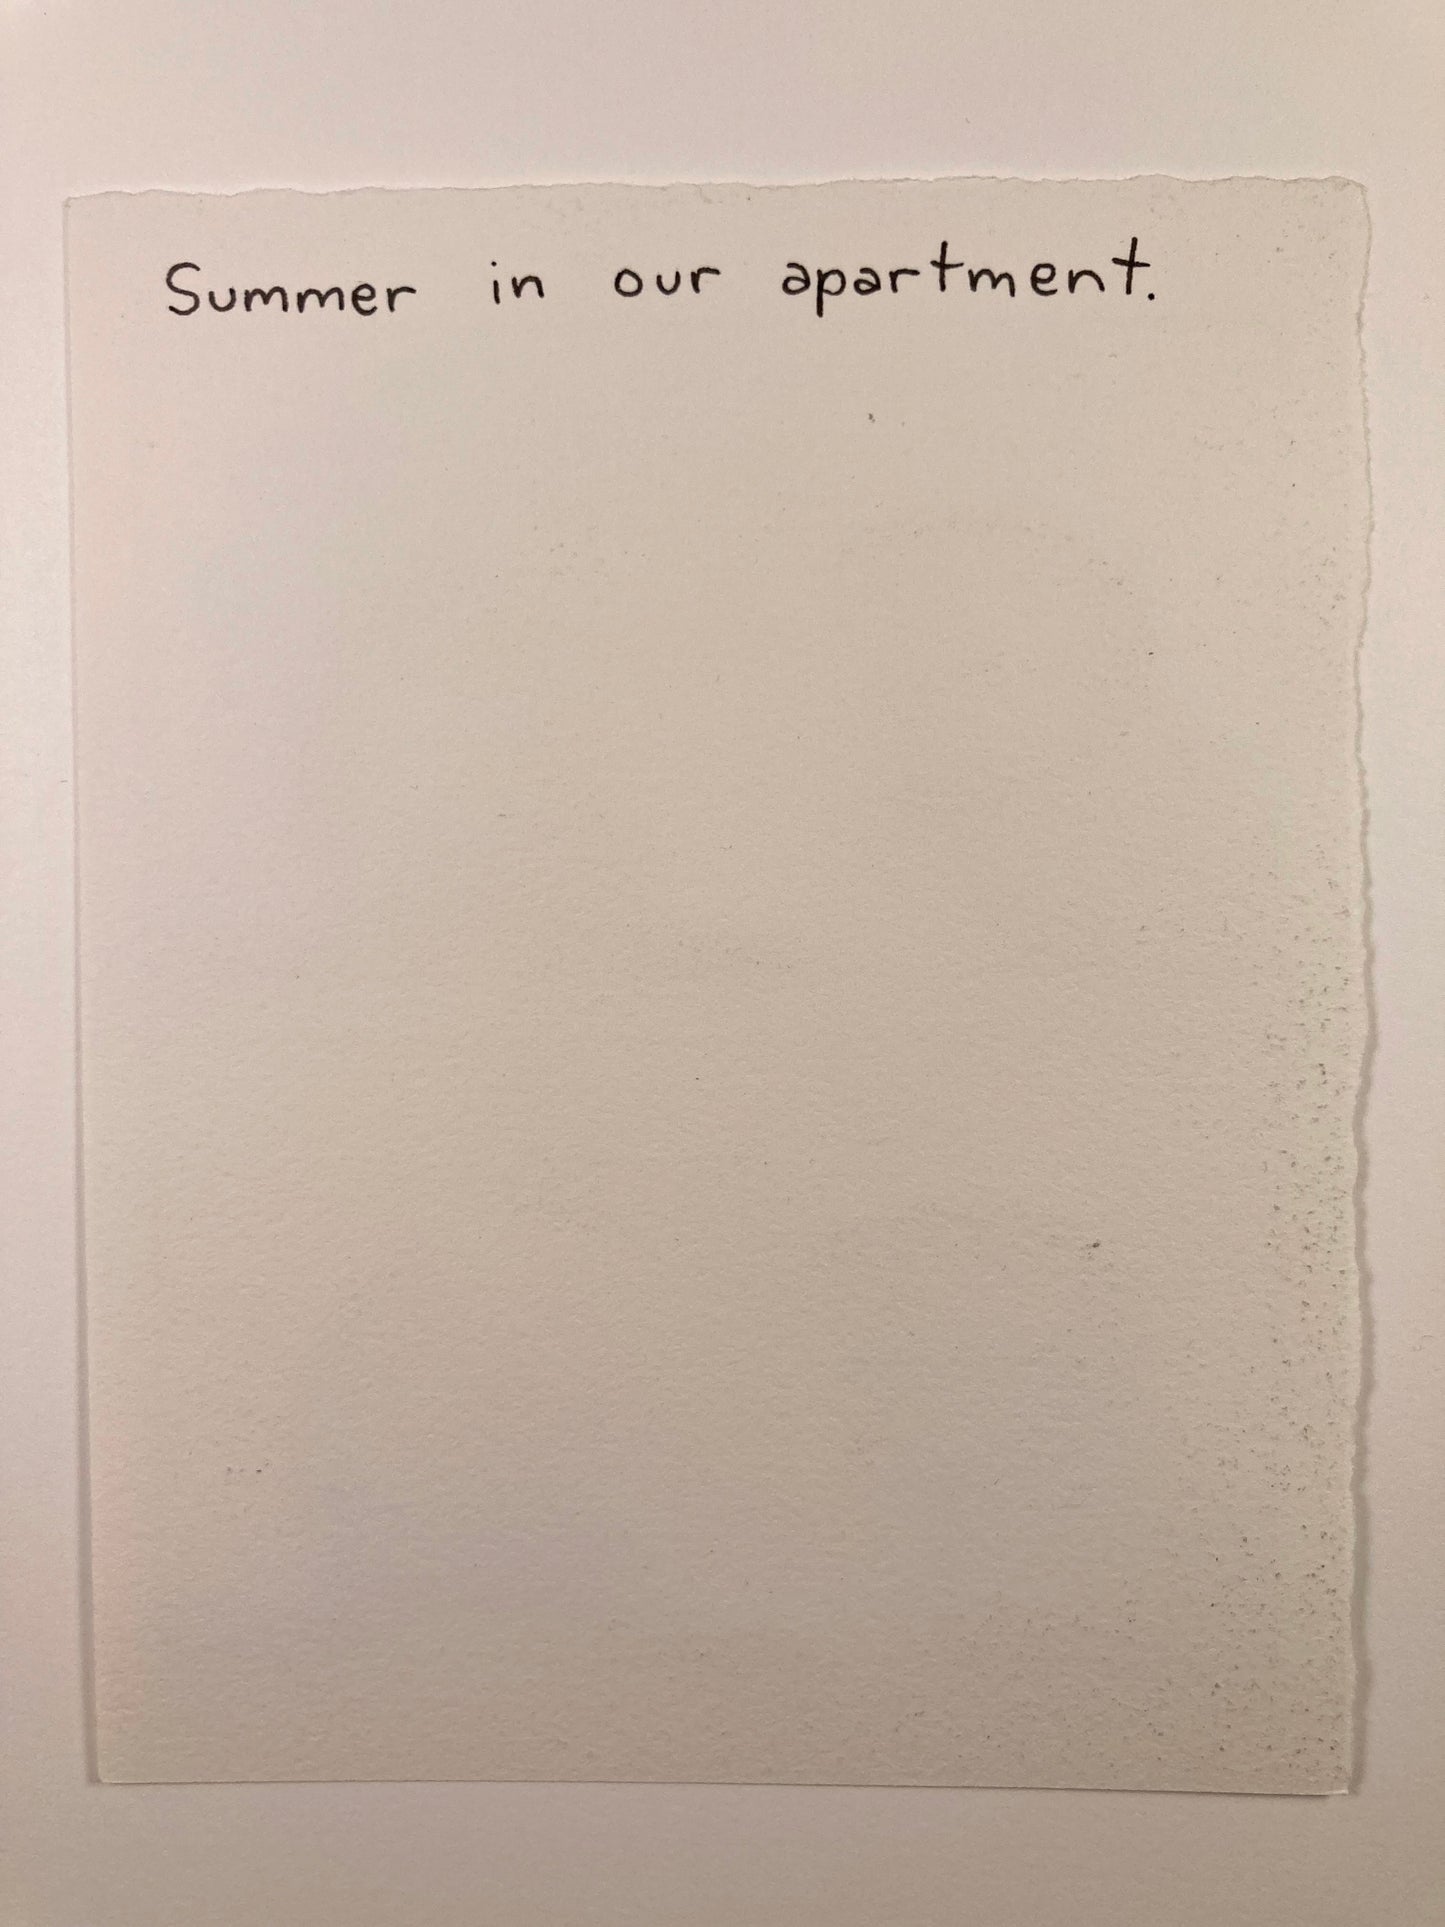 Summer in our apartment.